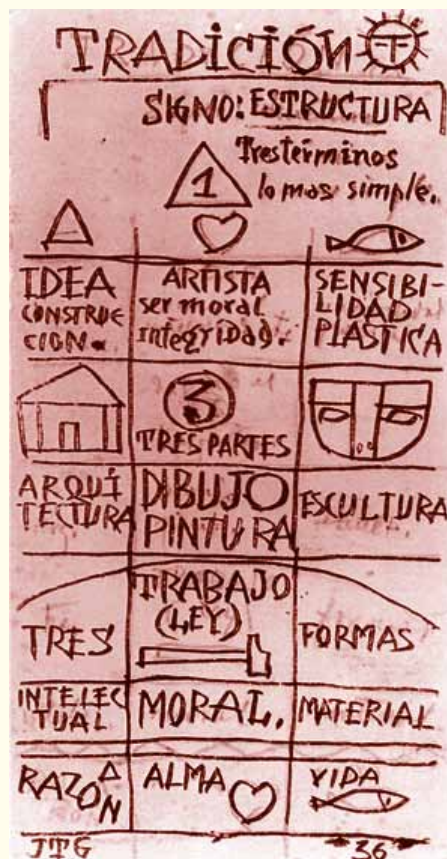 TRADICIÓN T
SIGNO: ESTRUCTURA
Tres terminos
lo mas simple.
1
IDEA
CONSTRUC
CION.
ARTISTA
ser moral
integridad.
SENSIBI-
LIDAD
PLASTICA
3
TRES PARTES
ARQUI
TECTURA
DIBUJO
PINTURA
ESCULTURA
TRABAJO
(LEY)
TRES
FORMAS
INTELEC
TUAL
MORAL.
MATERIAL
RAZON
ALMA
VIDA
JTG
36